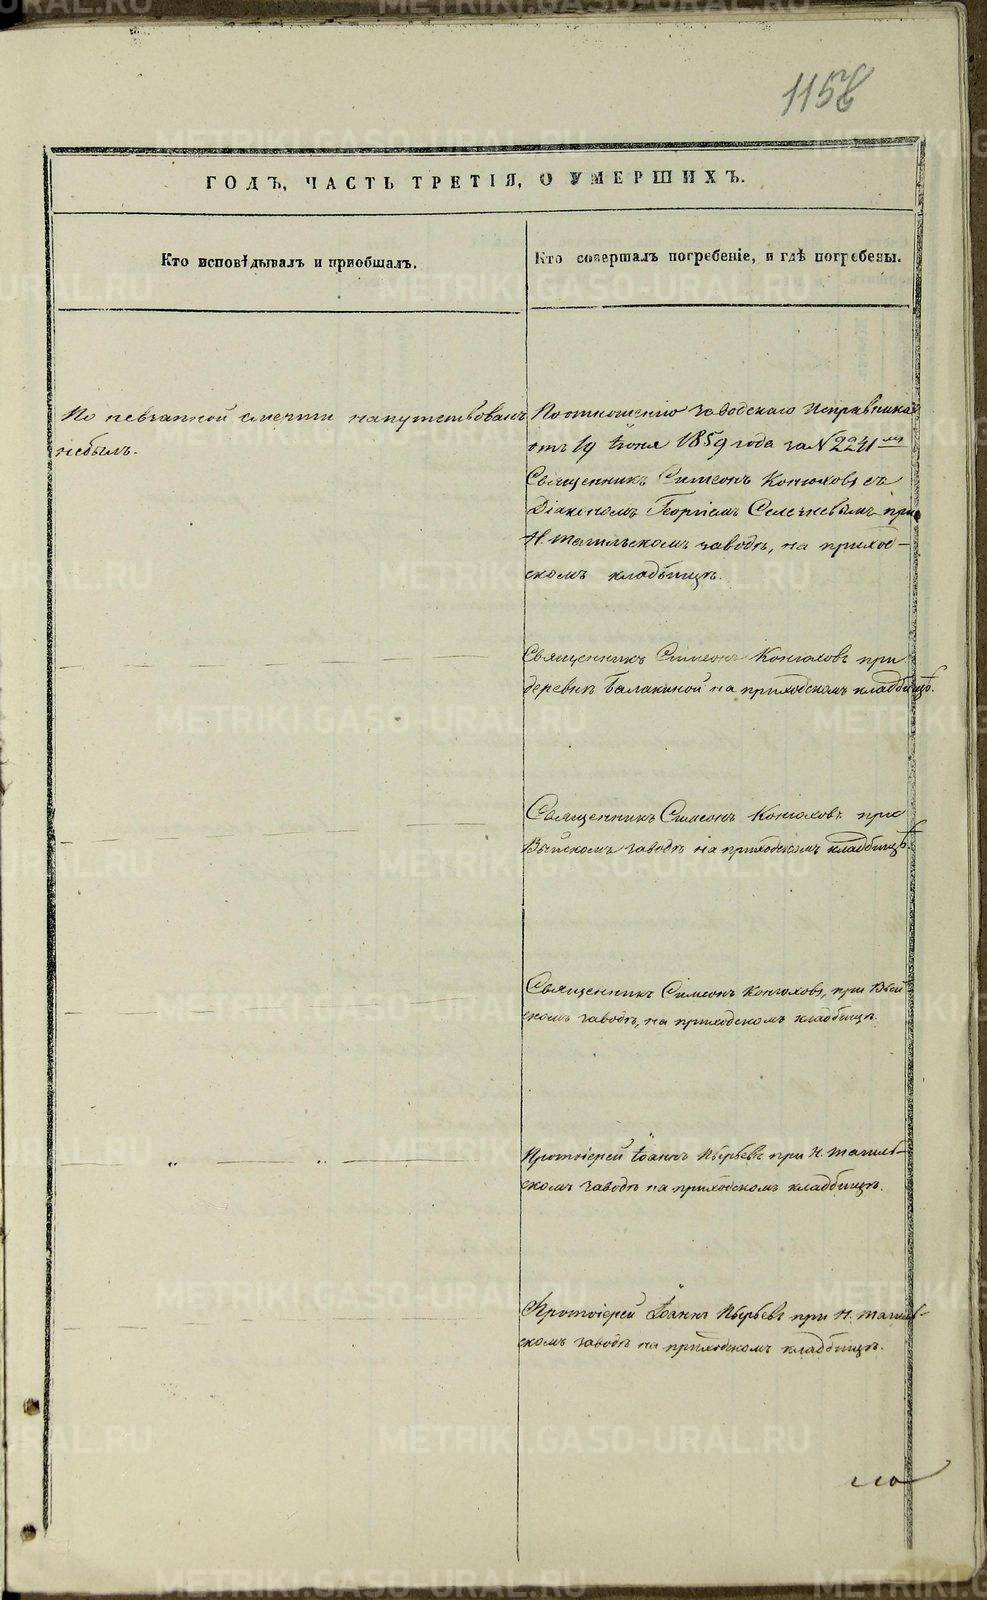 1158
ГОДЪ, ЧАСТЬ ТРЕТІЯ, О УМЕРШИХЪ.
Кто исповѣдывалъ и пріобщалъ.
Кто совершалъ погребеніе, и гдѣ погребены.
По невзапной смерти напутствованъ
небылъ.
По отношенію заводскаго Исправника
отъ 19 Іюня 1859 года за №2241мъ
Священникъ Симеонъ Конюховъ съ
Діакономъ Георгіемъ Селезневымъ при
Н. тагильскомъ заводѣ, на приход-
скомъ кладбищѣ.
Священникъ Симеонъ Конюховъ при
деревнѣ Балакиной на приходскомъ кладбищѣ.
Священникъ Симеонъ Конюховъ при
Выйскомъ заводѣ на приходскомъ кладбищѣ.
Священникъ Симеонъ Конюховъ, при Вый
скомъ заводѣ, на приходскомъ кладбищѣ.
Протоіерей Іоаннъ при Н. тагиль-
скомъ заводѣ на приходскомъ кладбищѣ.
Протоіерей Іоаннъ при Н. тагиль-
скомъ заводѣ на приходскомъ кладбищѣ.
METRIKI.GASO-URAL.RU